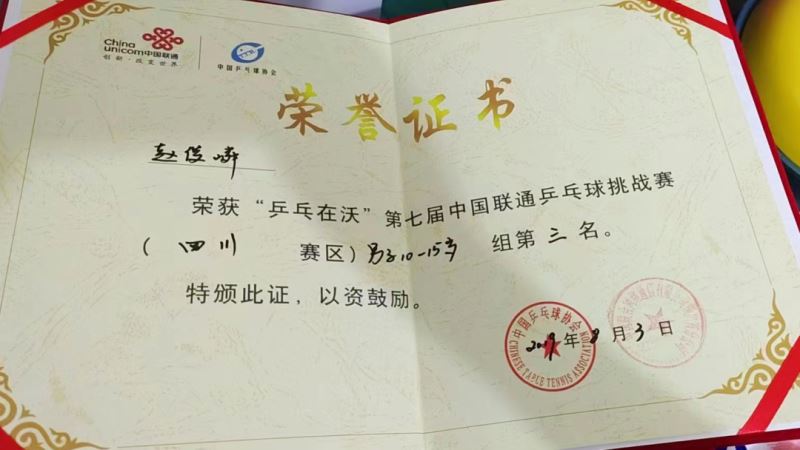 China
unicom中国联通
创新·改变世界
中国乒乓球协会
荣誉证书
赵俊
荣获“乒乓在沃”第七届中国联通乒乓球挑战赛
(四川 赛区)男子10-15岁 组第三名。
特颁此证,以资鼓励。
中国乒乓球协会
CHINESE TABLE TENNIS ASSOCIATION
2019年8月3日